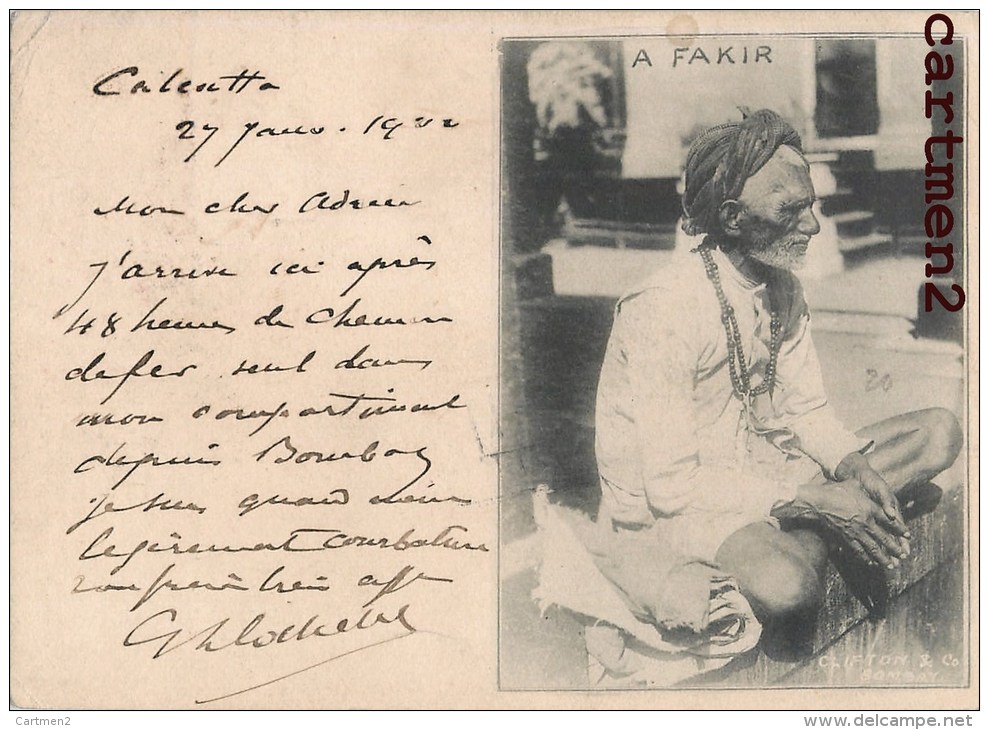 Calcutta
27 Janv. 1902
Mon cher Adrien
j'arrive ici après
48 heures de chemin
de fer seul dans
mon compartiment
depuis Bombay
je suis quand même
legèrement courbaturé
ton frère très aff
A FAKIR
20
CLIFTON & Co
BOMBAY
cartmen2
Cartmen2
www.delcampe.net